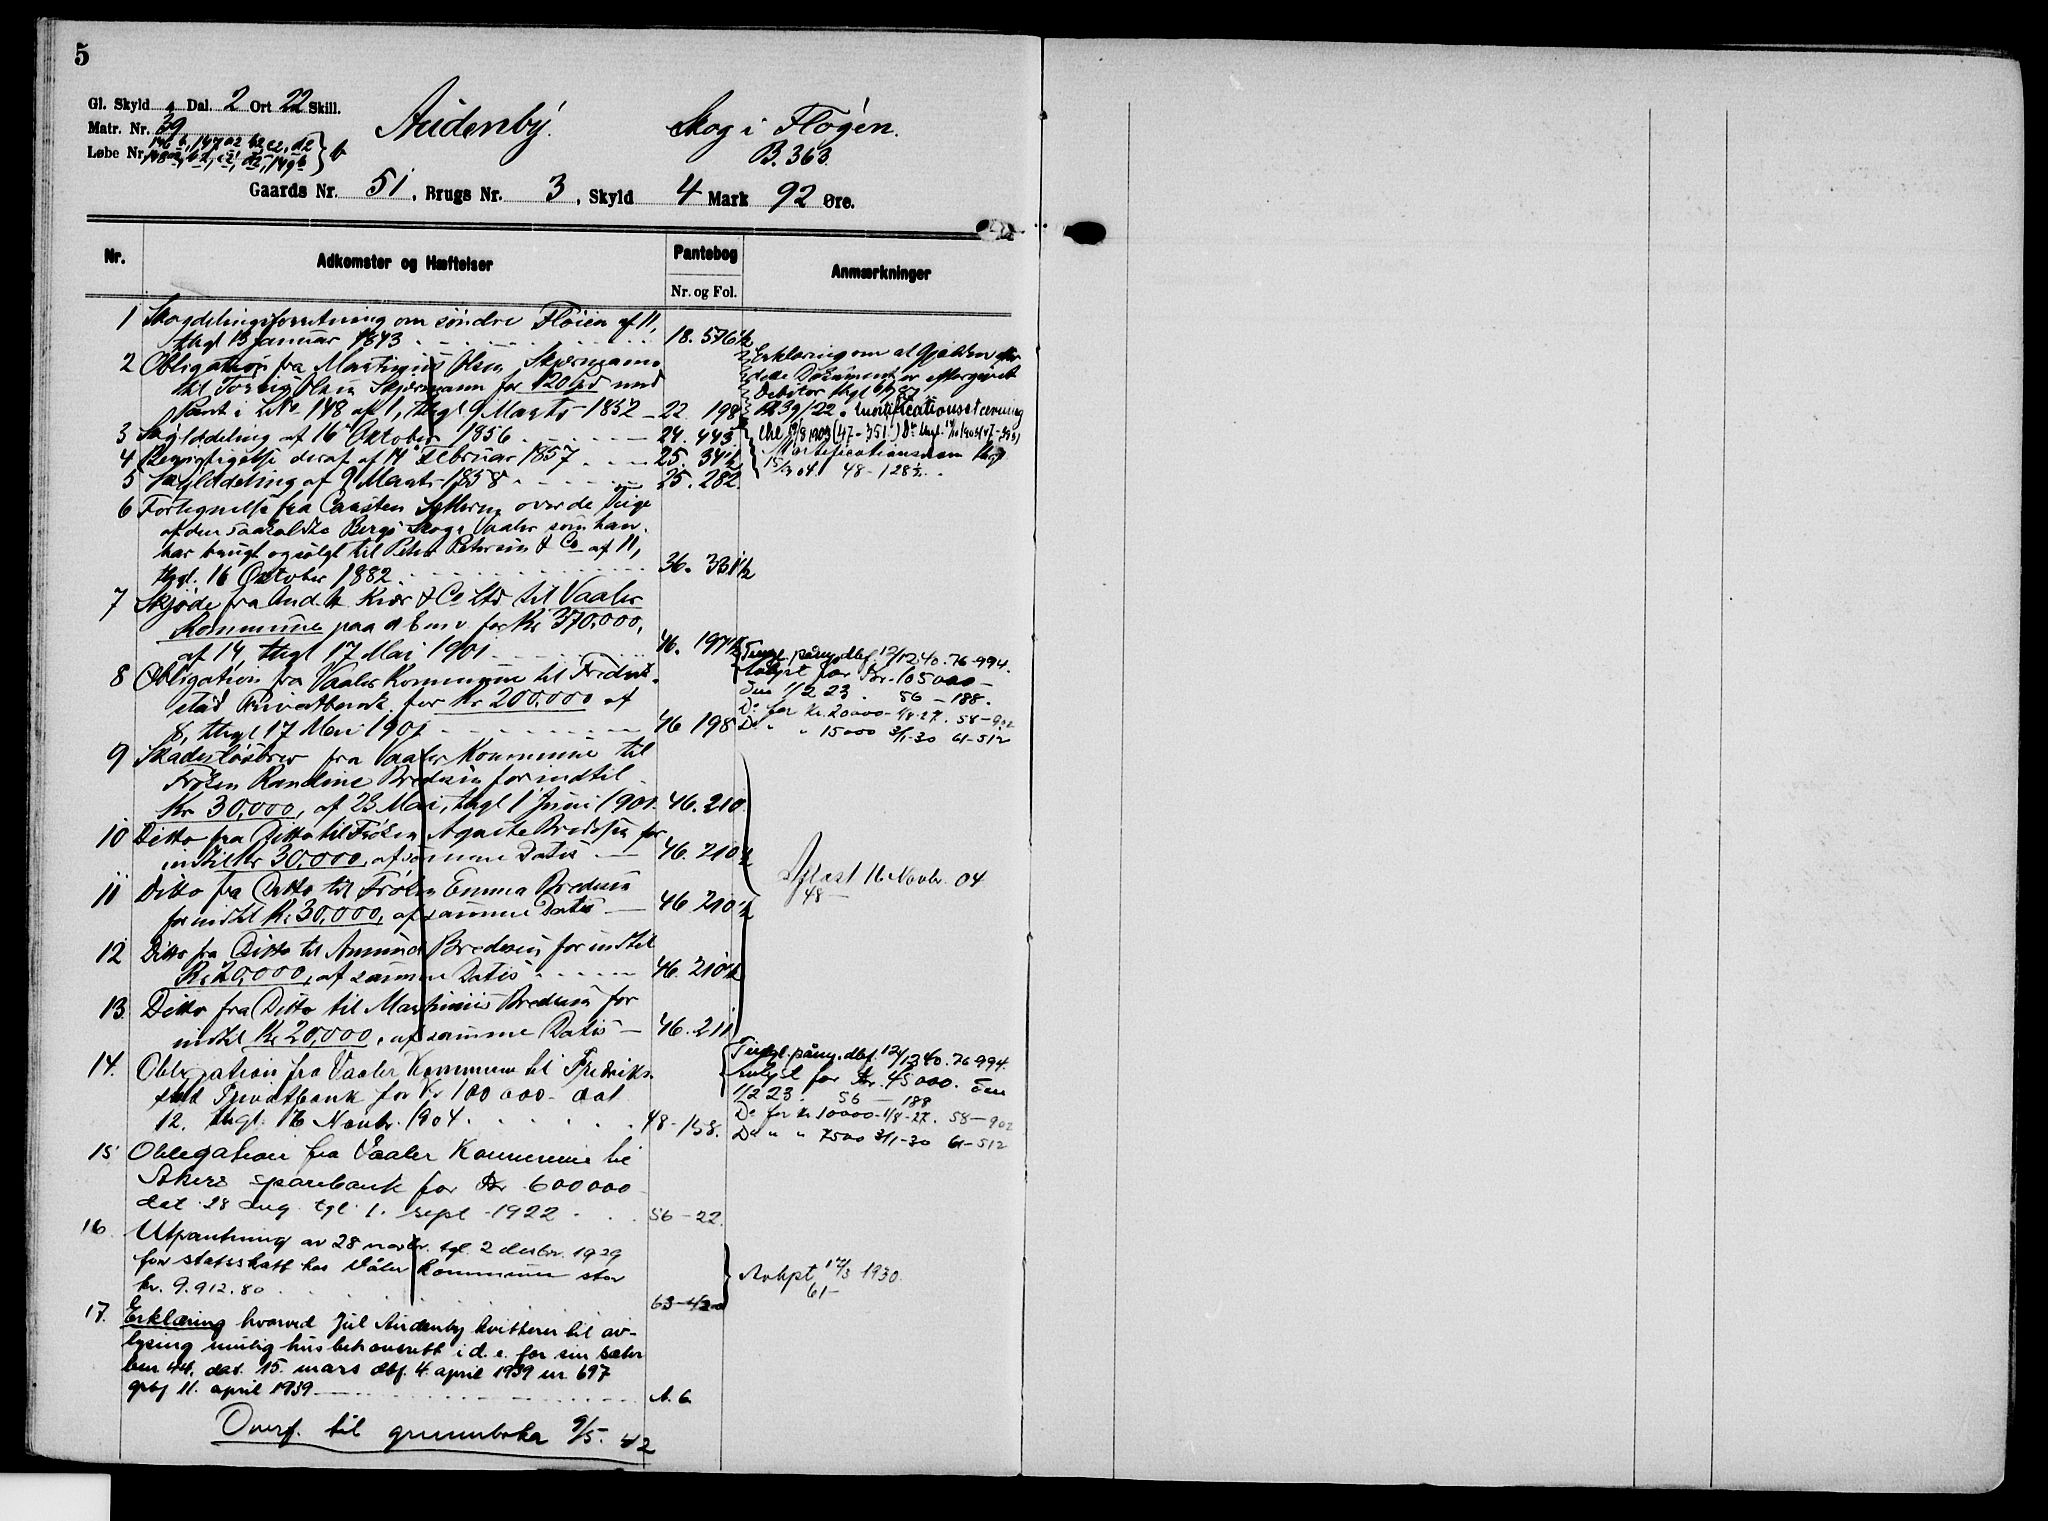 5
Gl. Skyld Dal. 2 Ort 22 Skill.
Matr. Nr. 39
Løbe Nr. 146 b, 147 a2, b2, c2, d2
148 a2, b2, c2, d2, 149 b } b
Audenby. Skog i Flogen.
B. 363.
Gaards Nr. 51, Brugs Nr. 3, Skyld 4 Mark 92 Øre.
Nr. Adkomster og Hæftelser Pantebog Anmærkninger
Nr. og Fol.
1 Skogdelingsforretning om søndre Fløien af 11,
thgl 13 Januar 1843 18. 576½
2 Obligation fra Martinius Olsen Skjærmann
til Olsen Skjærmann for 120 Spd mod
Pant i LNo 148 af 1, thgl 9 Marts 1852 22. 198
Erklæring om at Gjælden efter
dette Dokument er eftergivet
Debitor thgl
39/22. Mortificationsstevning
(47-351)
Mortificationsdom thgl
15/3 04 48-128½
3 Skylddeling af 16 Oktober 1856 24. 443
4 Berigtigelse deraf af 14 Februar 1857 25. 34½
5 Skylddeling af 9 Marts 1858 25. 282
6 Fortegnelse fra Carsten over de Teige
af den saakaldte Bergs Skog i Vaaler som han
har bragt og solgt til Peter Petersen & Co af 11,
thgl. 16 Oktober 1882 36. 331½
7 Skjøde fra And. H. Kiær & Co Ltd til Vaaler
Kommune paa d E m v for Kr 370,000,
af 14, thgl 17 Mai 1901 46. 197½
8 Obligation fra Vaaler Kommune til Fredrik-
stad Privatbank for Kr 200,000 af
8, thgl 17 Mai 1901 46 198
Tingl. påny. dbf. 12/12 40. 76-994.
Avlyst for kr. 105000-
den 1/2 23. 56-188.
Do for Kr. 20000- 1/8-27. 58-902
Do " " 15000 3/1-30 61-512
9 Skadesløsbrev fra Vaaler Kommune til
Frøken Randine Bredesen for indtil
Kr 30,000, af 23 Mai, thgl 1 Juni 1901. 46. 210.
10 Ditto fra Ditto til Frøken Agnete Bredesen for
indtil Kr 30,000, af samme Datis 46. 210½
11 Ditto fra Ditto til Frøken Emma Bredesen
for indtil Kr 30,000, af samme Datis 46 210½
Aflæst 16 Novbr. 04
48-
12 Ditto fra Ditto til Amund Bredesen for indtil
Kr 20,000, af samme Datis 46. 210½
13. Ditto fra Ditto til Marthinius Bredesen for
indtil Kr 20,000, af samme Datis 46. 211
14. Obligation fra Vaaler Kommune til Fredrik-
stad Privatbank for Kr 100 000- dat
12. thgl. 16 Novbr. 1904. 48-158.
Tingl. påny. dbf. 12/12 40. 76-994.
Avlyst for kr. 45000. den
1/2 23. 56-188
Do for Kr 10000- 1/8-27. 58-902
Do " " 7500 3/1-30 61-512
15 Obligation fra Vaaler Kommune til
Akers sparebank for Kr 600 000
dat. 28 aug. tgl. 1. sept 1922. 56-22.
16. Utpantning av 28 novbr. tgl. 2 desbr. 1929
for statsskatt hos Våler kommune stor
kr. 9.912.80 63-420
Avlyst 12/3 1930.
61-
17. Erklæring hvorved Jul Audenby kvitterer til av-
lysing mulig husbehovsrett i d. e. for sin
bnr 44, dat. 15. mars dbf. 4. april 1939 nr 697
gbf 11. april 1939 A. 6
Overf. til grunnboka 9/5. 42